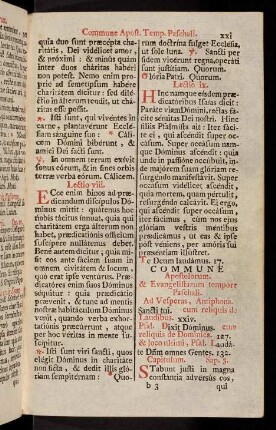 Commune Apost. Temp. Paschali. xxi
quia duo sunt præcepta cha-
ritatis, Dei videlicet amor,
& próximi: & minùs quàm
inter duos cháritas habéri
non potest. Nemo enim pro-
priè ad semetípsum habére
charitátem dícitur: sed diléc-
tio in álterum tendit, ut chá-
ritas esse possit.
℟. Isti sunt, qui vivéntes in
carne, plantavérunt Ecclé-
siam sánguine suo: * Cálicem
Dómini bibérunt, &
amíci Dei facti sunt.
℣. In omnem terram exívit
sonus eórum, & in fines orbis
terræ verba eórum. Cálicem.
Lectio viij.
ECce enim binos ad præ-
dicándum discípulos Dó-
minus mittit: quátenus hoc
nobis tácitus ínnuat, quia qui
charitátem erga álterum non
habet, prædicatiónis offícium
suscípere nullátenus debet.
Bene autem dícitur, quia mi-
sit eos ante fáciem suam in
omnem civitátem & locum,
quò erat ipse ventúrus. Præ-
dicatóres enim suos Dóminus
séquitur: quia prædicátio
prævenit, & tunc ad mentis
nostræ habitáculum Dóminus
venit, quando verba exhor-
tatiónis præcúrrunt, atque
per hoc véritas in mente su-
scípitur.
℟. Isti sunt viri sancti, quos
elégit Dóminus in charitáte
non ficta, & dedit illis gló-
riam sempitérnam: * Quo-
rum doctrína fulget Ecclésia,
ut sole luna. ℣. Sancti per
fidem vicérunt regna, operáti
sunt justítiam. Quorum.
Glória Patri. Quorum.
Lectio ix.
HInc namque eisdem præ-
dicatóribus Isaías dicit:
Paráte viam Dómini, rectas fá-
cite sémitas Dei nostri. Hinc
illis Psalmísta ait: Iter fáci-
te ei, qui ascéndit super oc-
cásum. Super occásum nam-
que Dóminus ascéndit: quia
unde in passióne occúbuit, in-
de majórem suam glóriam re-
surgéndo manifestávit. Super
occásum vidélicet ascéndit:
quia mortem, quam pértulit,
resurgéndo calcávit. Ei ergo,
qui ascéndit super occásum,
iter fácimus, cùm nos ejus
glóriam vestris méntibus
prædicámus, ut eas & ipse
post véniens, per amóris sui
præséntiam illústret.
Te Deum laudámus. 17.
COMMUNE
Apostolorum,
& Evangelistarum tempore
Paschali.
Ad Vesperas, Antiphona.
Sancti tui. cum reliquis de
Laudibus. xxiv.
Psal. Dixit Dóminus. cum
reliquis de Dominica. 127.
& loco ultimi, Psal. Laudá-
te Dóm omnes Gentes. 132.
Capitulum. Sap. 5.
STabunt justi in magna
constántia advérsùs eos,
b 3 qui